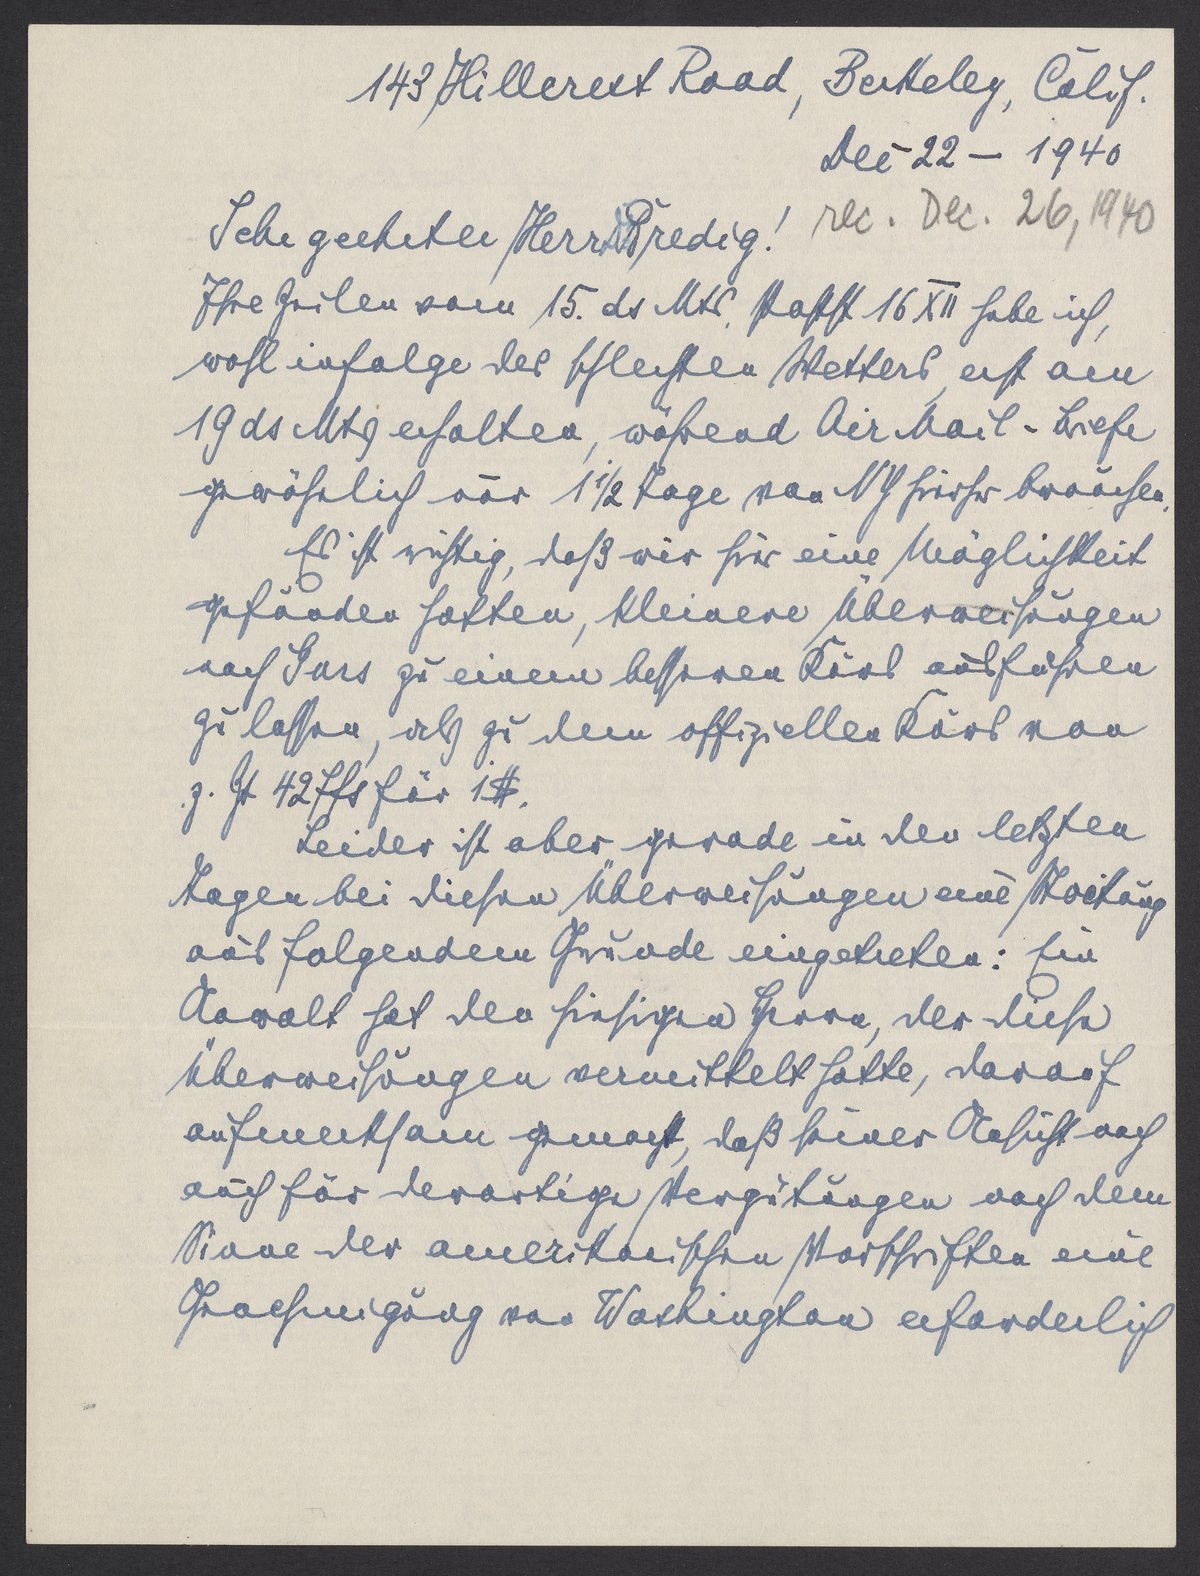 143 Hillcrest Road, Berkeley, Calif.
Dec 22 – 1940
rec. Dec. 26, 1940
Sehr geehrter Herr Bredig!
Ihre Zeilen vom 15. ds Mts. 16 XII habe ich,
wohl infolge des schlechten Wetters, erst am
19 ds Mts erhalten, während Air Mail-Briefe
gewöhnlich nur 1 1/2 Tage von NY hierher brauchen.
Es ist richtig, daß wir hier eine Möglichkeit
gefunden hatten, kleinere Überweisungen
nach Gurs zu einem besseren Kurs ausführen
zu lassen, als zu dem offiziellen Kurs von
z. Zt 42 ffs für 1 $.
Leider ist aber gerade in den letzten
Tagen bei diesen Überweisungen eine Stockung
aus folgendem Grunde eingetreten: Ein
Anwalt hat den hiesigen Herrn, der diese
Überweisungen vermittelt hatte, darauf
aufmerksam gemacht, daß seiner Ansicht nach
auch für derartige Vergütungen nach dem
Sinne der amerikanischen Vorschriften eine
Genehmigung von Washington erforderlich